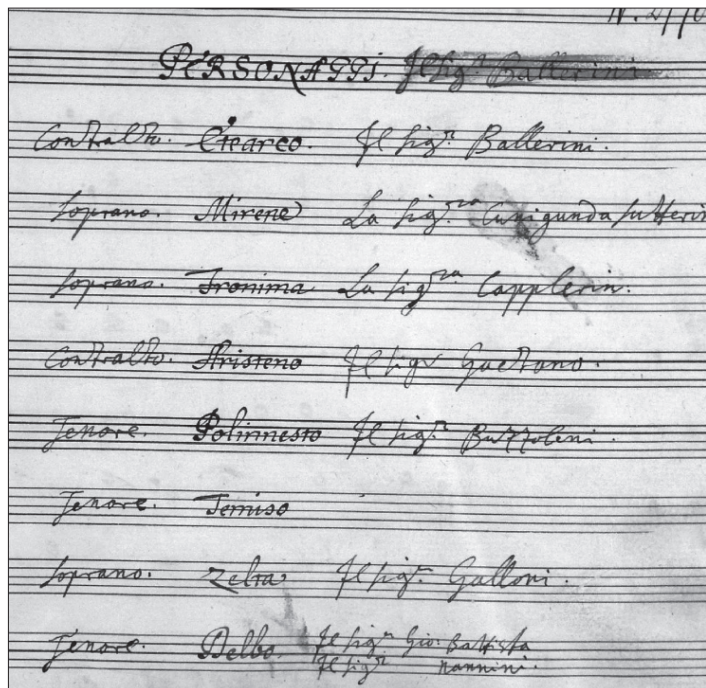 PERSONAGGI. Il sigr. Ballerini
Contralto. Etearco. Il sigr. Ballerini.
Soprano. Mirene La sigra Cunigunda Sutterin
Soprano. Fronima La sigra Capplerin.
Contralto. Aristeno Il sigr Gaetano.
Tenore. Polinnesto Il sigr. Buzzoleni.
Tenore. Temiso
Soprano. Zelta Il sigr. Galloni.
Tenore. Delbo. Il sigr. Gio. Battista
Il sigr. Nannini.